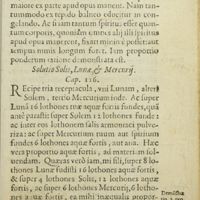 maiore ex parte apud opus manent. Nam tan-
tummodo ex tepido balneo educitur in con-
gelando. Ac si iam tantum spiritus esset quan-
tum corporis, quoniam omnes alij isti spiritus
apud opus manerent, fixatq́; minùs posset aut
tempus nimis longum foret. Iam proportio
ponderum ratione demonstrata est.
Solutio Solis, Lunæ, & Mercurij.
Cap. 116.
REcipe tria receptacula, vni Lunam, alteri
Solem, tertio Mercurium inde. Ac super
Lunā 16 lothones aquæ fortis funde, quā
antè parasti: super Solem 12 lothones funde,
ac inte eos lothonem salis armoniaci pulve-
riza: ac super Mercurium aut spiritum funde
6 lothones aquæ fortis,
vera proportio aquæ fortis, ad materi m sol-
vendam. Quæras verò iam, mi fili, super 8 lo-
thones Lunæ fundis 16 lothones aquæ fortis,
& super 4 lothones Solis, 12 lothones aquæ
fortis, ac super 6 lothones Mercurij, 6 lotho-
nes aquæ fortis, ea mihi inæqualia propor-